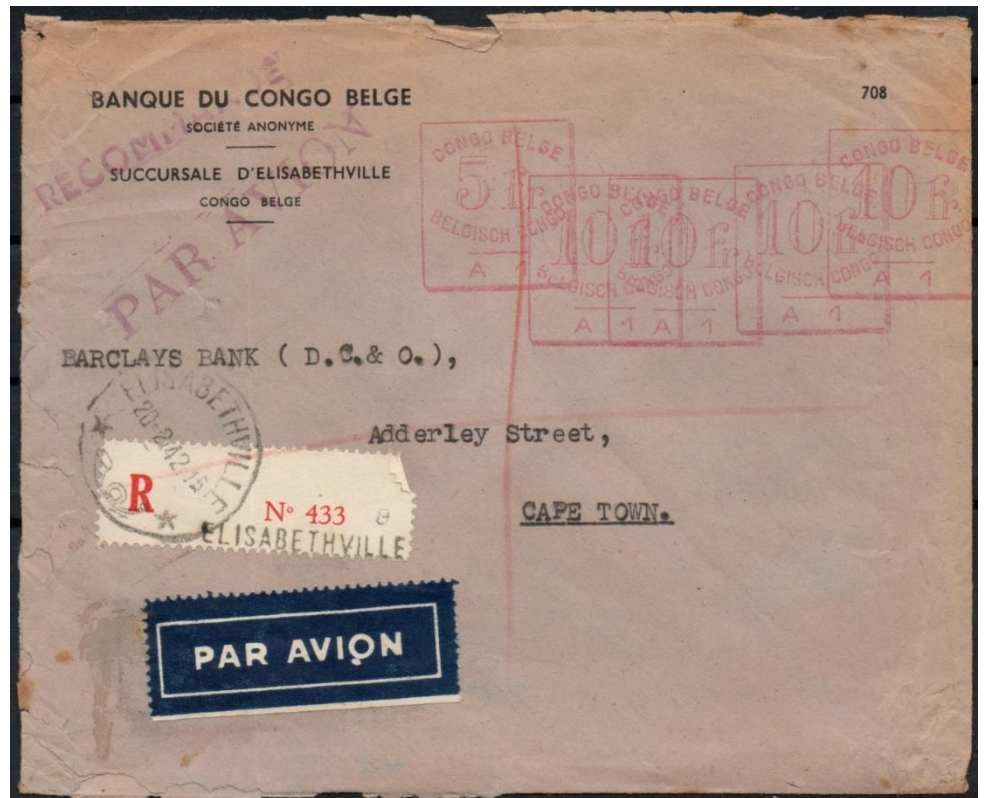 BANQUE DU CONGO BELGE
SOCIÉTÉ ANONYME
SUCCURSALE D'ELISABETHVILLE
CONGO BELGE
708
RECOMMANDÉ
PAR AVION
CONGO BELGE
5 fr.
BELGISCH CONGO
A 1
CONGO BELGE
10
BELGISCH CONGO
A 1
CONGO BELGE
10 fr.
BELGISCH CONGO
A 1
CONGO BELGE
10 fr.
BELGISCH CONGO
A 1
CONGO BELGE
10 fr.
BELGISCH CONGO
A 1
BARCLAYS BANK ( D.C.& O.),
Adderley Street,
CAPE TOWN.
ELISABETHVILLE
R
Nº 433
ELISABETHVILLE
PAR AVION